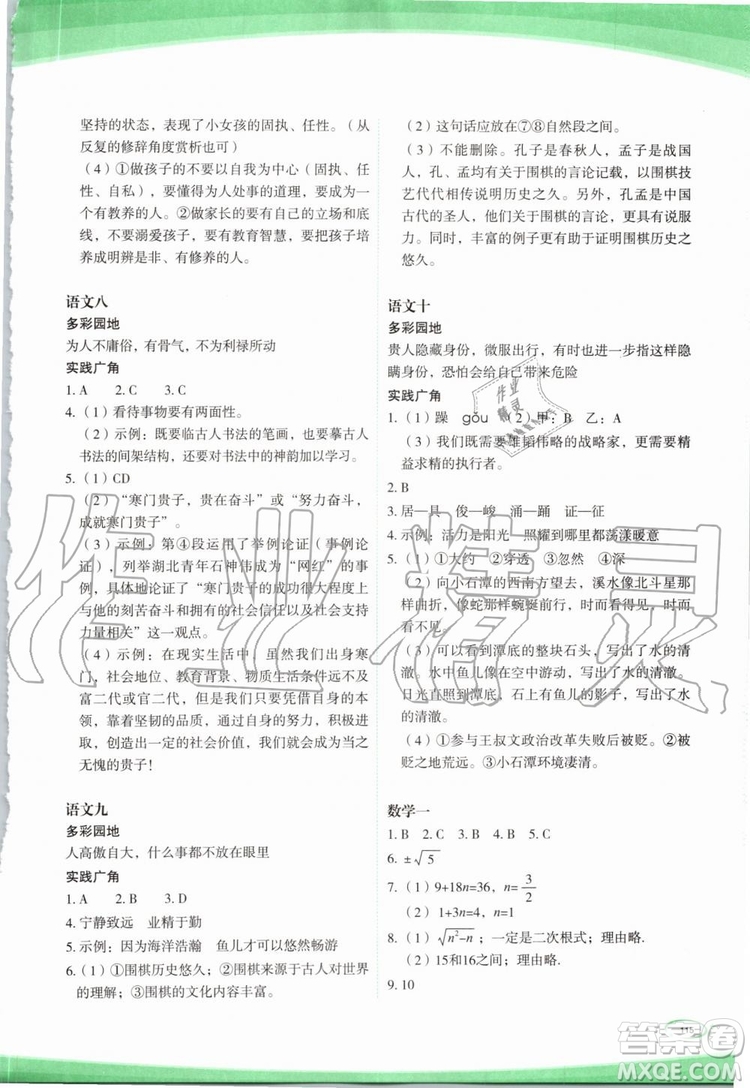 坚持的状态，表现了小女孩的固执、任性。（从
反复的修辞角度赏析也可）
（4）①做孩子的不要以自我为中心（固执、任
性、自私），要懂得为人处事的道理，要做一
个有教养的人。②做家长的要有自己的立场和底
线，不要溺爱孩子，要有教育智慧，要把孩子培
养成明辨是非、有修养的人。
语文八
多彩园地
为人不庸俗，有骨气，不为利禄所动
实践广角
1. A　2. C　3. C
4.（1）看待事物要有两面性。
（2）示例：既要临古人书法的笔画，也要摹古人
书法的间架结构，还要对其中的神韵加以学习。
5.（1）CD
（2）“寒门贵子，贵在奋斗”或“努力奋斗，
成就寒门贵子”。
（3）示例：第④段运用了举例论证（事例论
证），列举湖北青年石神伟成为“网红”的事
例，具体论证了“寒门贵子的成功很大程度上
与他的刻苦奋斗和拥有的社会信任以及社会支持
力量相关”这一观点。
（4）示例：在现实生活中，虽然我们出身寒
门，社会地位、教育背景、物质生活条件远不及
富二代或官二代，但是我们可以凭借自身的本
领，靠着坚韧的品质，通过不懈的努力，积极进
取，创造出一定的社会价值，我们就会成为真正
无愧的贵子！
语文九
多彩园地
人高傲自大，什么事都不放在眼里
实践广角
1. A　2. B　3. D
4. 宁静致远　业精于勤
5. 示例：因为海洋浩瀚　鱼儿才可以悠然畅游
6.（1）①围棋历史悠久；②围棋来源于古人对世界
的理解；③围棋的文化内容丰富。
（2）这句话应放在⑦⑧自然段之间。
（3）不能删除。孔子是春秋人，孟子是战国
人，孔、孟均有关于围棋的言论记载，以围棋技
艺代代相传说明历史之久。另外，孔孟是中国
古代的圣人，他们关于围棋的言论，更有说服
力。同时，丰富的例子更有助于证明围棋历史之
悠久。
语文十
多彩园地
贵人隐藏身份，微服出行，有时也进一步指这样隐
瞒身份，恐怕会给自己带来危险
实践广角
1.（1）躁　gǒu　（2）甲：B　乙：A
（3）我们既需要雄韬伟略的战略家，更需要精
益求精的执行者。
2. B
3. 居—具　俊—峻　涌—踊　证—征
4. 示例：活力是阳光　照耀到哪里都荡漾暖意
5.（1）①大约　②穿透　③忽然　④深
（2）向小石潭的西南方望去，溪水像北斗星那
样曲折，像蛇那样蜿蜒前行，有时看得见，有时
看不见。
（3）看到潭底的整块石头，写出了水的清
澈。水中鱼儿像在空中游动，写出了水的清澈。
日光直照潭底，石上有鱼儿的影子，写出了水
的清澈。
（4）①参与王叔文政治改革失败后被贬。②被
贬之地荒远。③小石潭环境凄清。
数学一
1. B　2. C　3. C　4. B　5. C
6. ±√5
7.（1）9+18n=36，n=3/2
（2）1+3n=4，n=1
8.（1）√(n²-n)；一定是二次根式；理由略.
（2）15和16之间；理由略.
9. 10
115
作业精灵
作业
精灵
答案圈
MXQE.COM